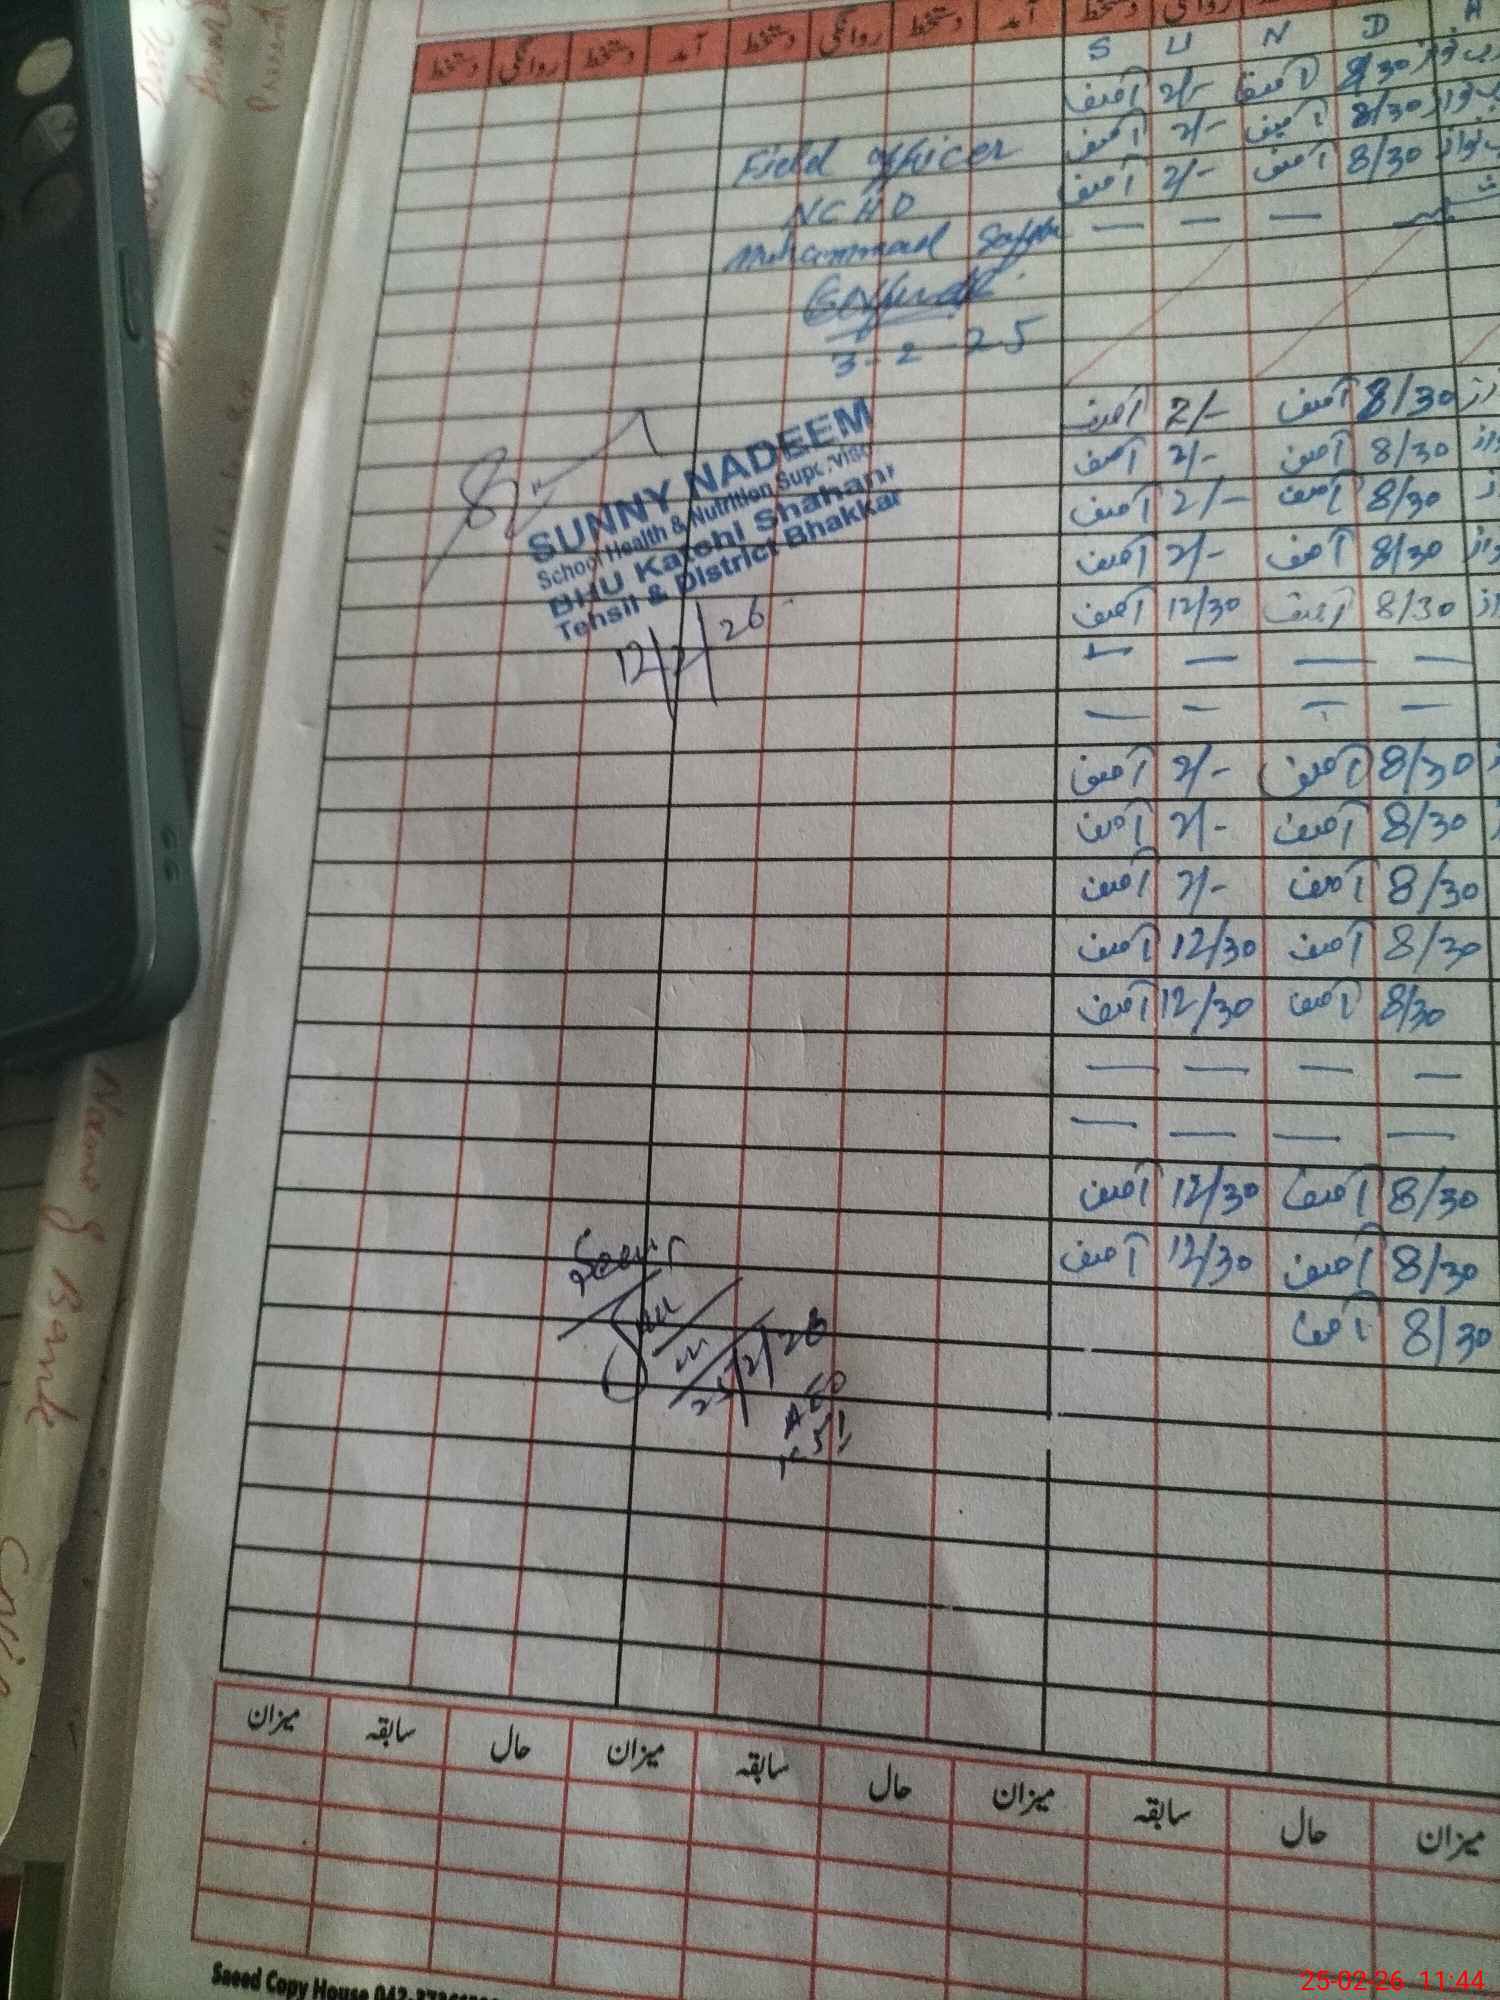 دستخط روانگی دستخط آمد دستخط روانگی دستخط آمد دستخط روانگی
S U N D A
آصف 2/- آصف 8/30
آصف 2/- آصف 8/30
آصف 2/- آصف 8/30
— — —
Field officer
NCHD
Muhammad
3-2-25
آصف 2/- آصف 8/30
آصف 2/- آصف 8/30
آصف 2/- آصف 8/30
آصف 2/- آصف 8/30
آصف 12/30 آصف 8/30
— — — —
— — — —
SUNNY NADEEM
School Health & Nutrition Supervisor
BHU Katchi Shahani
Tehsil & District Bhakkar
12/2/26
آصف 2/- آصف 8/30
آصف 2/- آصف 8/30
آصف 2/- آصف 8/30
آصف 12/30 آصف 8/30
آصف 12/30 آصف 8/30
— — — —
— — — —
آصف 12/30 آصف 8/30
آصف 12/30 آصف 8/30
آصف 8/30
Seen
25/2/26
میزان سابقہ حال میزان سابقہ حال میزان سابقہ حال میزان
Saeed Copy House
Name of Bank
25-02-26 11:44